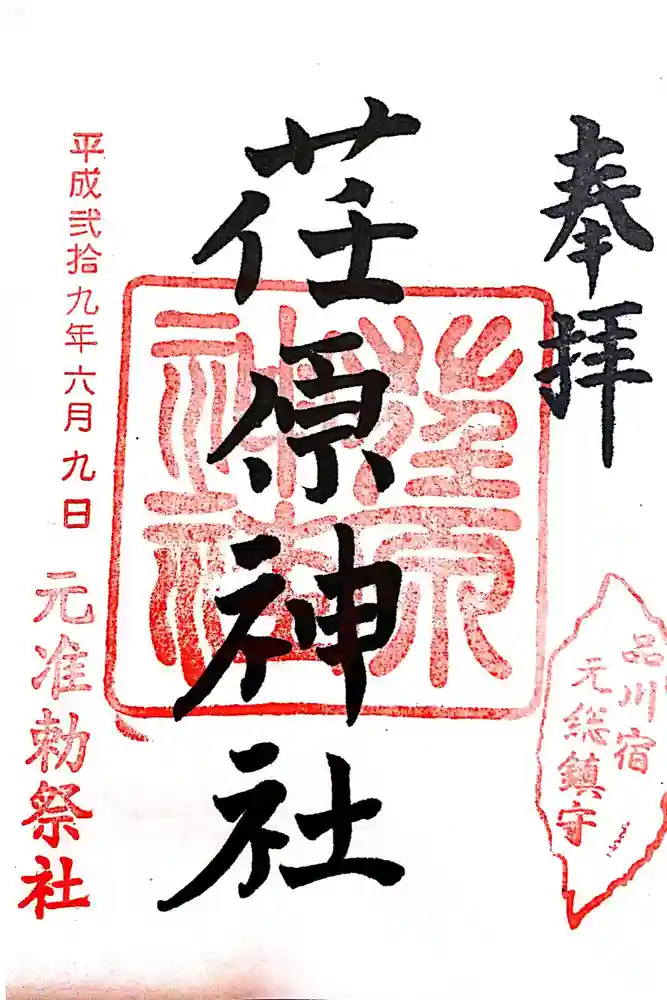 奉拝
品川宿
元総鎮守
荏原神社
荏原神社
平成弐拾九年六月九日
元准勅祭社